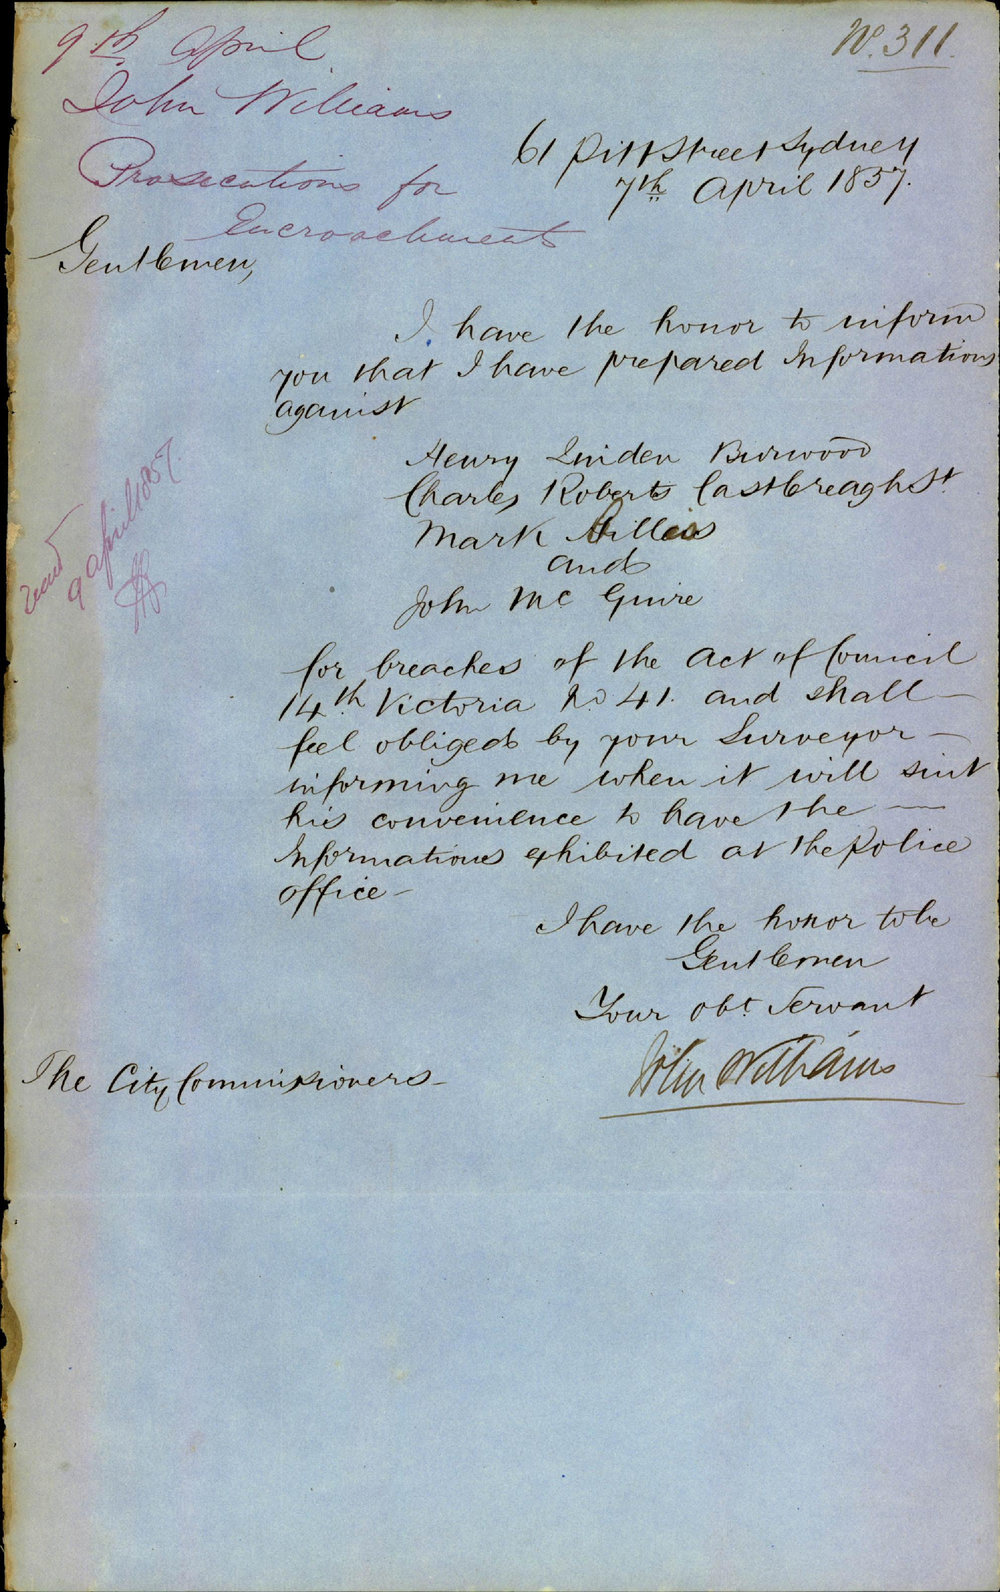 No. 311.
9th April
John Williams
Prosecutions for
Encroachments
61 Pitt Street Sydney
7th April 1857.
Gentlemen,
I have the honor to inform
you that I have prepared Informations
against
Henry Linden Burwood
Charles Roberts Castlereagh St.
Mark
and
John Mc Guire
for breaches of the Act of Council
14th Victoria No 41. and shall
feel obliged by your Surveyor
informing me when it will suit
his convenience to have the
Informations exhibited at the Police
office
I have the honor to be
Gentlemen
Your obt. Servant
John Williams
The City Commissioners
read
9 April 1857.